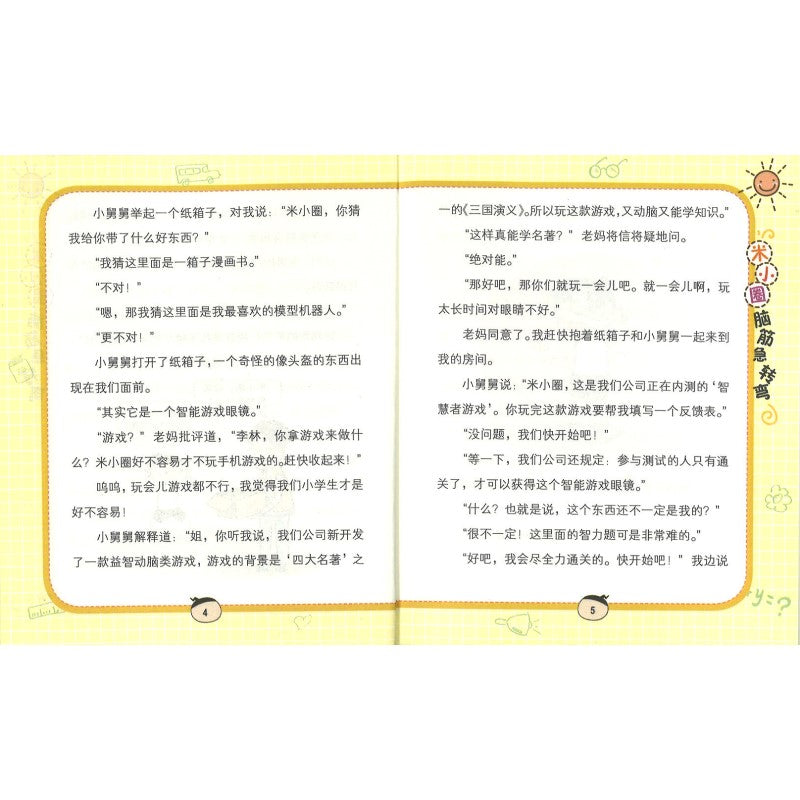 小舅舅举起一个纸箱子，对我说：“米小圈，你猜
我给你带了什么好东西？”
“我猜这里面是一箱子漫画书。”
“不对！”
“嗯，那我猜这里面是我最喜欢的模型机器人。”
“更不对！”
小舅舅打开了纸箱子，一个奇怪的像头盔的东西出
现在我们面前。
“其实它是一个智能游戏眼镜。”
“游戏？”老妈批评道，“李林，你拿游戏来做什
么？米小圈好不容易才不玩手机游戏的。赶快收起来！”
呜呜，玩会儿游戏都不行，我觉得我们小学生才是
好不容易！
小舅舅解释道：“姐，你听我说，我们公司新开发
了一款益智动脑类游戏，游戏的背景是‘四大名著’之
4
一的《三国演义》。所以玩这款游戏，又动脑又能学知识。”
“这样真能学名著？”老妈将信将疑地问。
“绝对能。”
“那好吧，那你们就玩一会儿吧。就一会儿啊，玩
太长时间对眼睛不好。”
老妈同意了。我赶快抱着纸箱子和小舅舅一起来到
我的房间。
小舅舅说：“米小圈，这是我们公司正在内测的‘智
慧者游戏’。你玩完这款游戏要帮我填写一个反馈表。”
“没问题，我们快开始吧！”
“等一下，我们公司还规定：参与测试的人只有通
关了，才可以获得这个智能游戏眼镜。”
“什么？也就是说，这个东西还不一定是我的？”
“很不一定！这里面的智力题可是非常难的。”
“好吧，我会尽全力通关的。快开始吧！”我边说
5
米小圈
脑筋急转弯
y=?